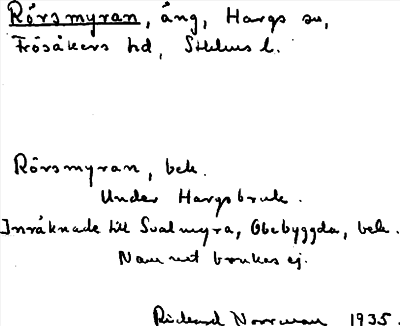 Rörsmyran, äng, Hargs sn,
Frösåkers hd, Sthlms l.
Rörsmyran, bek.
Under Hargsbruk.
Inräknade till Svalmyra, Obebyggda, bek.
Namnet brukas ej.
Rickard Norrman 1935.